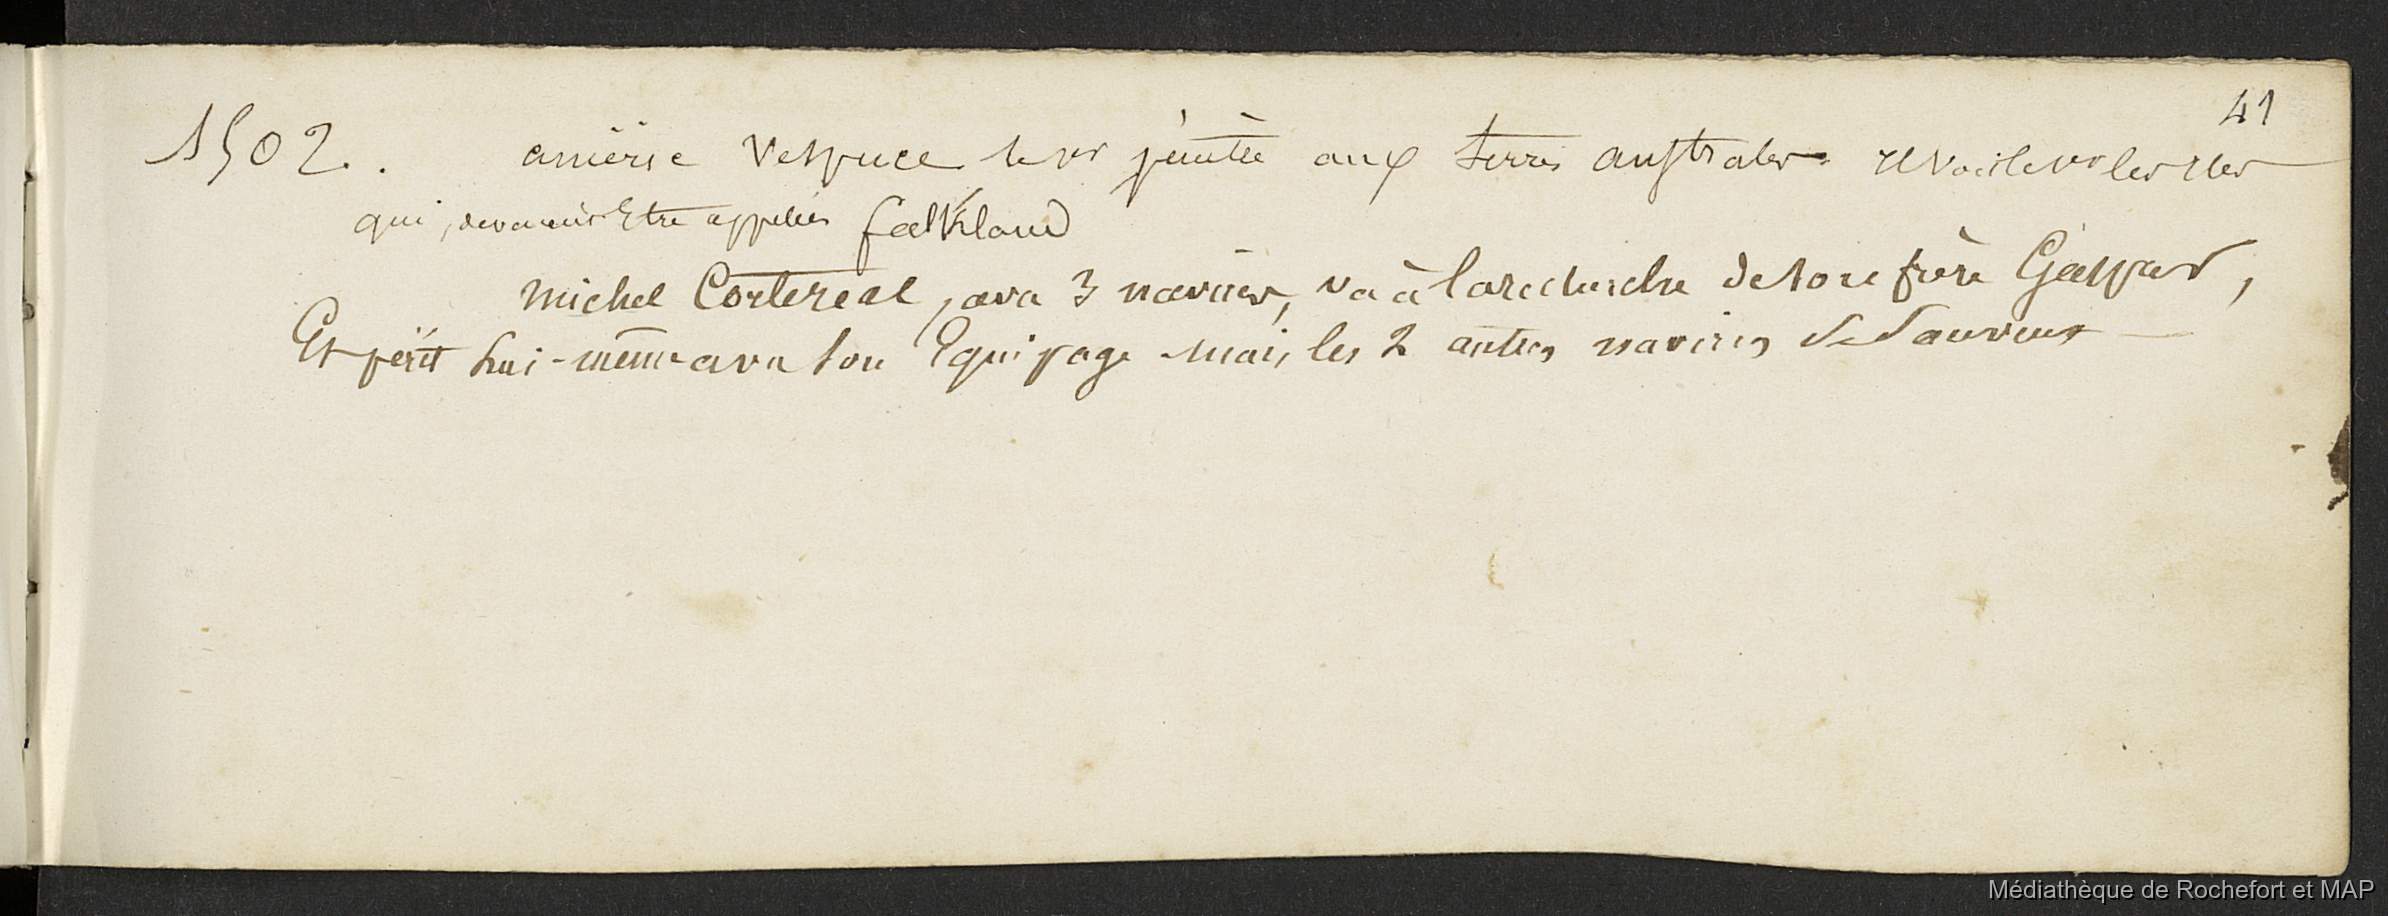 41
1502. améric Vespuce aux terres australes. Il voit les Iles
qui devaient Etre appelées falkland
Michel Cortereal, avec 3 navires, va à la recherche de son frère Gaspar,
Et périt lui-même avec son Equipage mais les 2 autres navires se sauvent —
Médiathèque de Rochefort et MAP